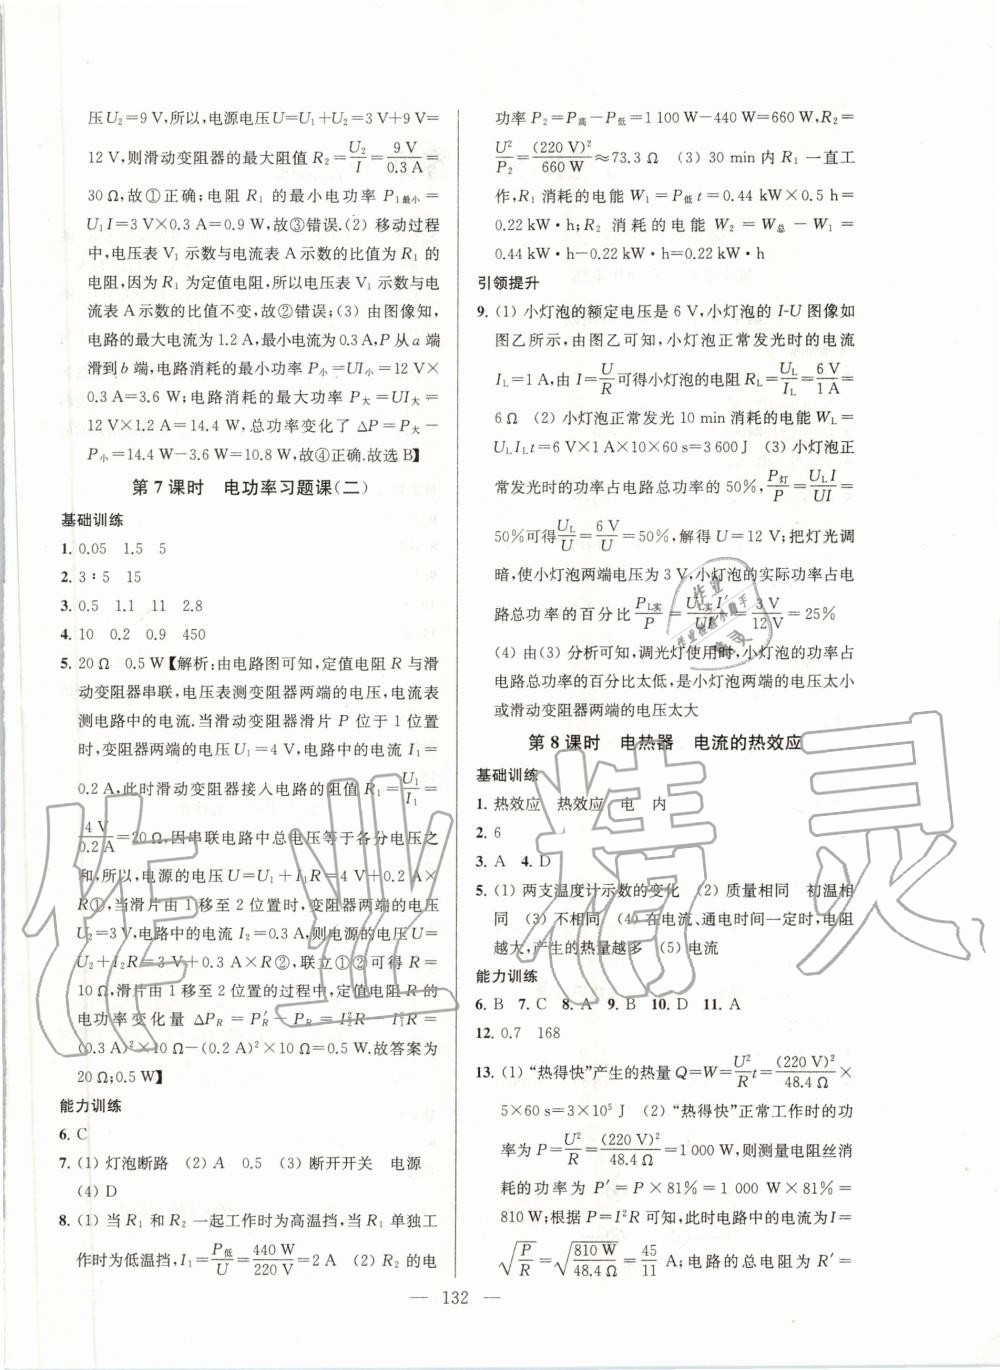 压U₂=9 V,所以,电源电压U=U₁+U₂=3 V+9 V=
12 V,则滑动变阻器的最大阻值 R₂=U₂/I=9 V/0.3 A=
30 Ω,故①正确;电阻 R₁ 的最小电功率 P₁最小=
U₁I=3 V×0.3 A=0.9 W,故③错误.(2) 移动过程
中,电压表 V₁ 示数与电流表 A 示数的比值为 R₁ 的
电阻,因为 R₁ 为定值电阻,则电压表 V₁ 示数与电
流表 A 示数的比值不变,故②错误;(3) 由图像知,
电路的最大电流为 1.2 A,最小电流为 0.3 A,P 从 a 端
滑到 b 端,电路消耗的最小功率 P小=UI小=12 V×
0.3 A=3.6 W;电路消耗的最大功率 P大=UI大=
12 V×1.2 A=14.4 W,总功率变化了 ΔP=P大-
P小=14.4 W-3.6 W=10.8 W,故④正确.故选 B】
第 7 课时 电功率习题课(二)
基础训练
1. 0.05 1.5 5
2. 3∶5 15
3. 0.5 1.1 11 2.8
4. 10 0.2 0.9 450
5. 20 Ω 0.5 W【解析:由电路图可知,定值电阻 R 与滑
动变阻器串联,电压表测变阻器两端的电压,电流表
测电路中的电流.当滑动变阻器滑片 P 位于 1 位置
时,变阻器两端的电压 U₁=4 V,电路中的电流 I₁=
0.2 A,此时滑动变阻器接入电路的阻值 R₁=U₁/I₁=
4 V/0.2 A=20 Ω,因串联电路中总电压等于各分电压之
和,所以,电源的电压 U=U₁+I₁R=4 V+0.2 A×
R①,当滑片由 1 移至 2 位置时,变阻器两端的电压
U₂=3 V,电路中的电流 I₂=0.3 A,则电源的电压 U=
U₂+I₂R=3 V+0.3 A×R②,联立①②可得 R=
10 Ω,滑片由 1 移至 2 位置的过程中,定值电阻 R 的
电功率变化量 ΔP_R=P′_R-P_R=I₂²R-I₁²R=
(0.3 A)²×10 Ω-(0.2 A)²×10 Ω=0.5 W.故答案为
20 Ω;0.5 W】
能力训练
6. C
7. (1) 灯泡断路 (2) A 0.5 (3) 断开开关 电源
(4) D
8. (1) 当 R₁ 和 R₂ 一起工作时为高温挡,当 R₁ 单独工
作时为低温挡,I₁=P低/U=440 W/220 V=2 A (2) R₂ 的电
— 132 —
功率 P₂=P高-P低=1 100 W-440 W=660 W,R₂=
U²/P₂=(220 V)²/660 W≈73.3 Ω (3) 30 min 内 R₁ 一直工
作,R₁ 消耗的电能 W₁=P低t=0.44 kW×0.5 h=
0.22 kW·h;R₂ 消耗的电能 W₂=W总-W₁=
0.44 kW·h-0.22 kW·h=0.22 kW·h
引领提升
9. (1) 小灯泡的额定电压是 6 V,小灯泡的 I-U 图像如
图乙所示,由图乙可知,小灯泡正常发光时的电流
I_L=1 A,由 I=U/R可得小灯泡的电阻 R_L=U_L/I_L=6 V/1 A=
6 Ω (2) 小灯泡正常发光 10 min 消耗的电能 W_L=
U_LI_Lt=6 V×1 A×10×60 s=3 600 J (3) 小灯泡正
常发光时的功率占电路总功率的 50%,P灯/P=U_LI/UI=
50%可得U_L/U=6 V/U=50%,解得 U=12 V;把灯光调
暗,使小灯泡两端电压为 3 V,小灯泡的实际功率占电
路总功率的百分比P_L实/P=U_L实I′/UI′=3 V/12 V=25%
(4) 由(3) 分析可知,调光灯使用时,小灯泡的功率占
电路总功率的百分比太低,是小灯泡的电压太小
或滑动变阻器两端的电压太大
第 8 课时 电热器 电流的热效应
基础训练
1. 热效应 热效应 电 内
2. 6
3. A 4. D
5. (1) 两支温度计示数的变化 (2) 质量相同 初温相
同 (3) 不相同 (4) 在电流、通电时间一定时,电阻
越大,产生的热量越多 (5) 电流
能力训练
6. B 7. C 8. A 9. B 10. D 11. A
12. 0.7 168
13. (1) “热得快”产生的热量 Q=W=U²/R t=(220 V)²/48.4 Ω×
5×60 s=3×10⁵ J (2) “热得快”正常工作时的功
率为 P=U²/R=(220 V)²/48.4 Ω=1 000 W,则测量电阻丝消
耗的功率为 P′=P×81%=1 000 W×81%=
810 W;根据 P=I²R 可知,此时电路中的电流为 I=
√(P/R)=√(810 W/48.4 Ω)=45/11 A;电路的总电阻为 R′=
作业精灵